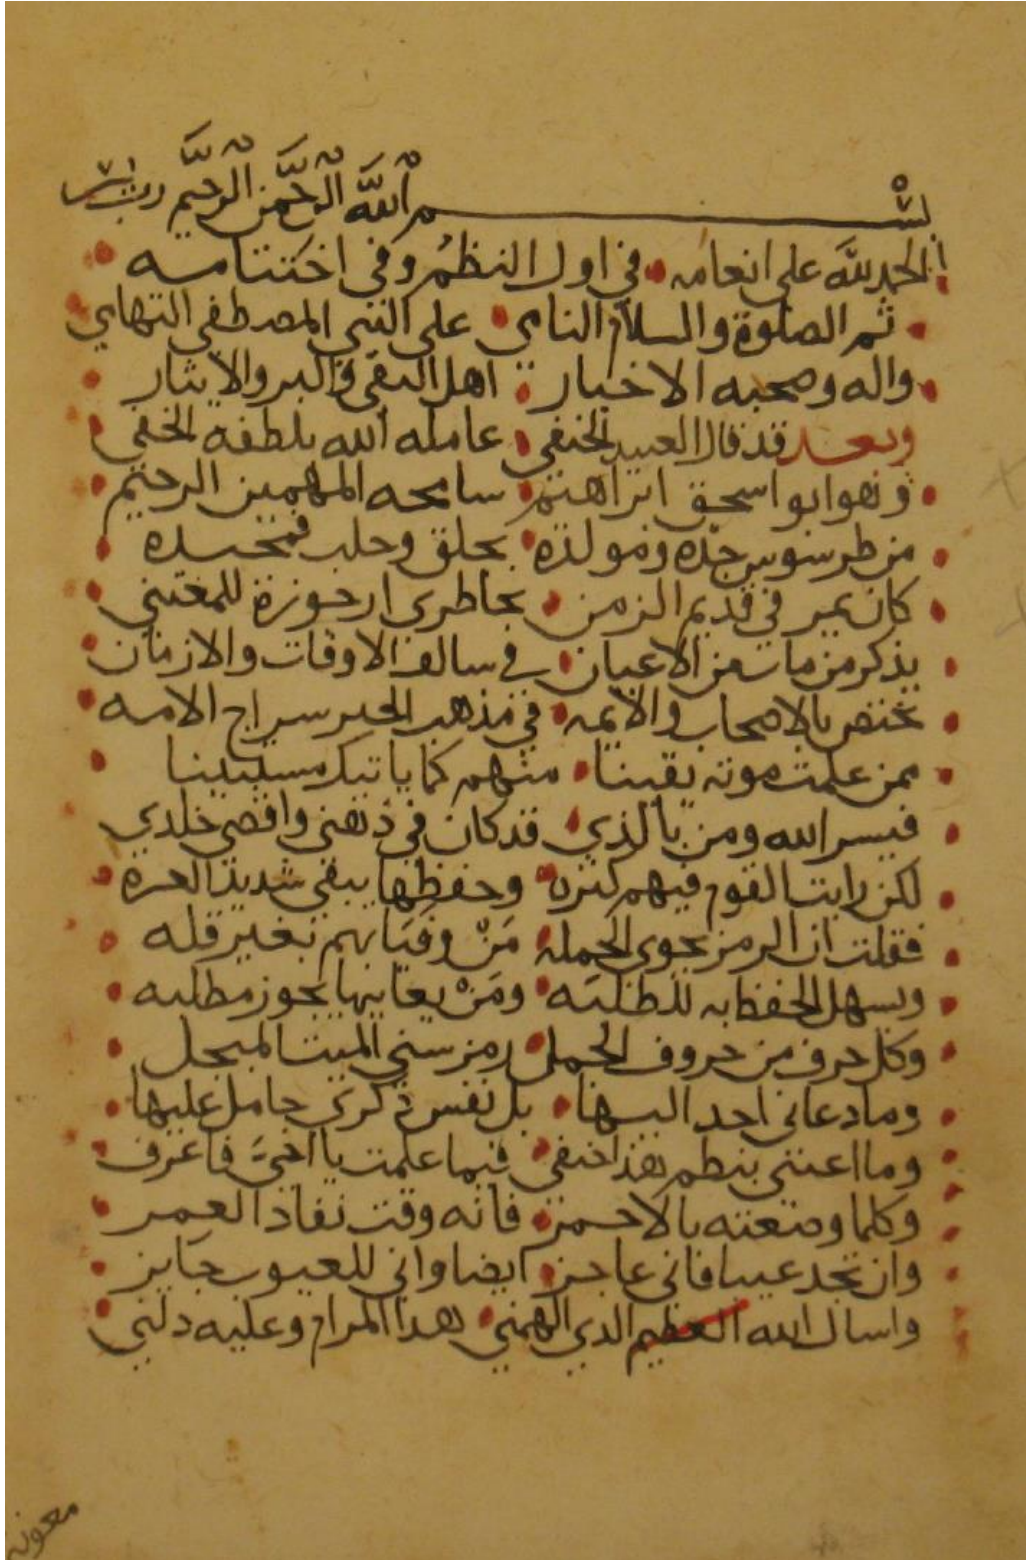 بسم الله الرحمن الرحيم رب يسر
الحمد لله على انعامه في اول النظم وفي اختتامه
ثم الصلوة والسلام النامي على النبي المصطفى التهامي
واله وصحبه الاخيار اهل التقى والبر والايثار
وبعد قد قال العبيد الحنفي عامله الله بلطفه الخفي
وهو ابو اسحق ابراهيم سامحه المهيمن الرحيم
من طرسوس جده ومولده بجلق وحلب فمحتده
كان يمر في قديم الزمن بخاطري ارجوزة للمعتني
بذكر من مات من الاعيان في سالف الاوقات والازمان
تختص بالاصحاب والايمه في مذهب الحبر سراج الامه
ممن علمت موته يقينا منهم كما ياتيك مستبينا
فيسر الله ومن بالذي قد كان في ذهني واقصى خلدي
لكن رايت القوم فيهم كثره وحفظها يبقى شديد العسره
فقلت ان الرمز يحوي الجمله من وفياتهم بغير قله
ويسهل الحفظ به للطلبه ومن يعانيها يحوز مطلبه
وكل حرف من حروف الجمل رمز سني الميت المبجل
وما دعاني احد اليها بل نفس ذكري حامل عليها
وما اعتنى بنظم هذا حنفي فيما علمت يا اخي فاعرف
وكلما وضعته بالاحمر فانه وقت نفاد العمر
وان تجد عيبا فاني عاجز ايضا واني للعيوب حايز
واسال الله العظيم الذي الهمني هذا المرام وعليه دلني
معونة